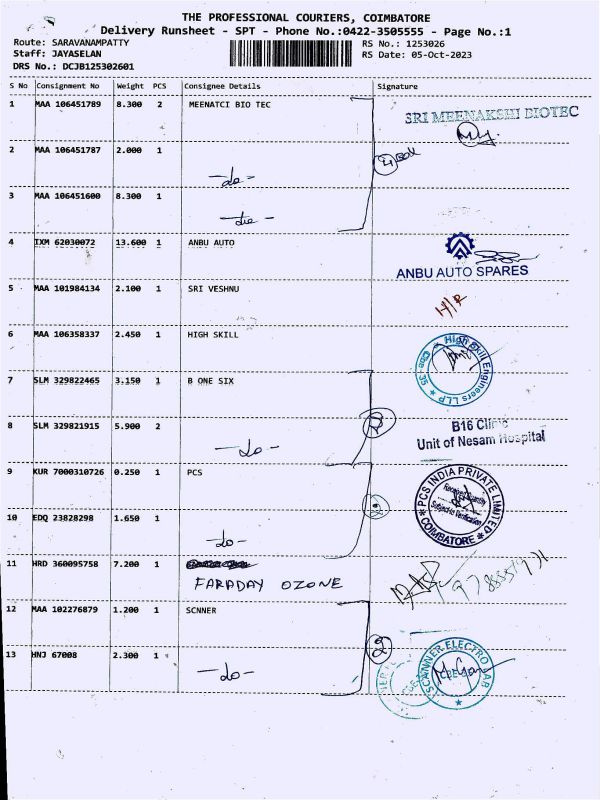 THE PROFESSIONAL COURIERS, COIMBATORE
Delivery Runsheet - SPT - Phone No.:0422-3505555 - Page No.:1
Route: SARAVANAMPATTY
RS No.: 1253026
Staff: JAYASELAN
RS Date: 05-Oct-2023
DRS No.: DCJB125302601
S No Consignment No Weight PCS Consignee Details Signature
1 MAA 106451789 8.300 2 MEENATCI BIO TEC
SRI MEENAKSHI BIOTEC
2 MAA 106451787 2.000 1
-do-
3 MAA 106451600 8.300 1
-do-
4 IXM 62030072 13.600 1 ANBU AUTO
ANBU AUTO SPARES
5 MAA 101984134 2.100 1 SRI VESHNU
H/R
6 MAA 106358337 2.450 1 HIGH SKILL
High Skill Engineers LLP
Cbe-35
7 SLM 329822465 3.150 1 B ONE SIX
8 SLM 329821915 5.900 2
-do-
2
B16 Clinic
Unit of Nesam Hospital
9 KUR 7000310726 0.250 1 PCS
PCS INDIA PRIVATE LIMITED
COIMBATORE
Subject to Verification
10 EDQ 23828298 1.650 1
-do-
11 HRD 360095758 7.200 1
FARADAY OZONE
12 MAA 102276879 1.200 1 SCNNER
13 HNJ 67008 2.300 1
-do-
2
SCANNER ELECTRO